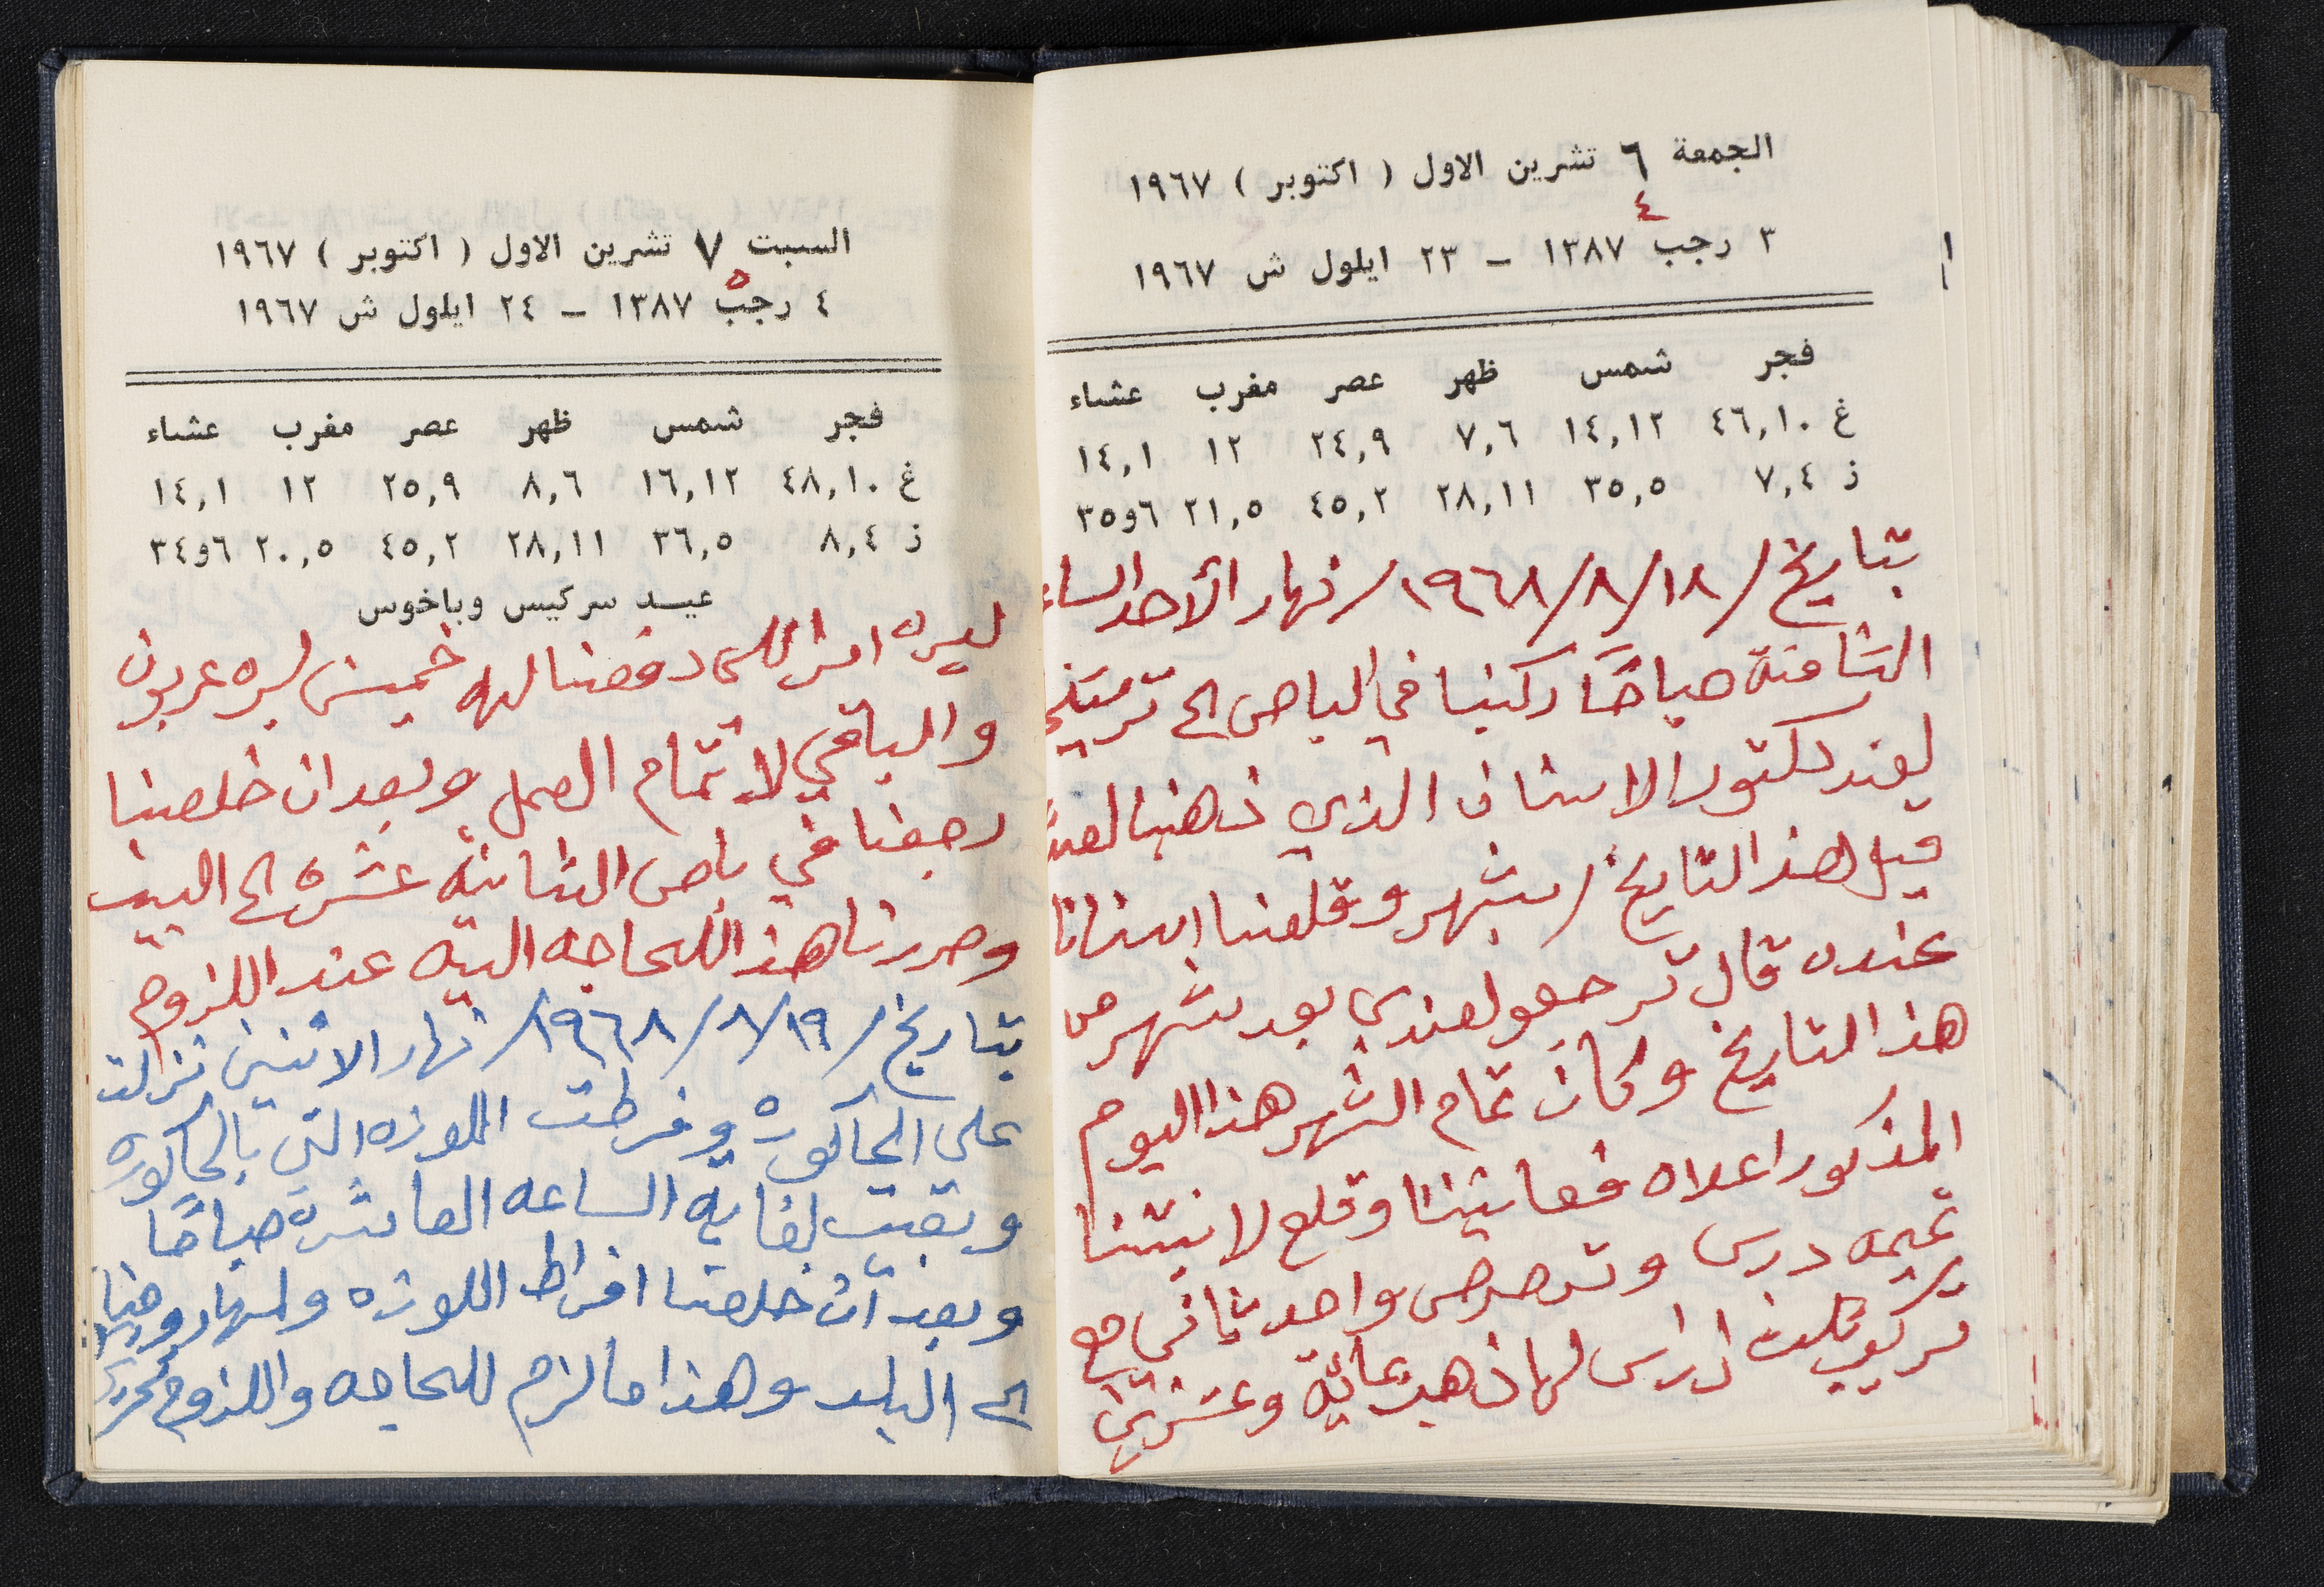 الجمعة ٦ تشرين الاول ( اكتوبر ) ١٩٦٧
٤
٣ رجب ١٣٨٧ – ٢٣ ايلول ش ١٩٦٧
فجر شمس ظهر عصر مغرب عشاء
غ ٤٦,١٠ ١٤,١٢ ٧,٦ ٢٤,٩ ١٢ ١٤,١
ز ٧,٤ ٣٥,٥ ٢٨,١١ ٤٥,٢ ٢١,٥ ٦و٣٥
بتاريخ /١٨/٨/١٩٦٨/ نهار الأحد الساعه
الثامنة صباحًا ركبنا في الباص الى
لعند دكتور الاسنان الذي ذهبنا لعنده
قبل هذا التاريخ / بشهر وقلعنا اسنانا
عنده قال ترجعو لعندي بعد شهر من
هذا التاريخ وكان تمام الشهر هذا اليوم
المذكور اعلاه فعايننا وقلع لابنتنا
درس وترصرص واحد ثاني مع
تركيب تلت اداراس لها ذهب عمائة وعشرين
السبت ٧ تشرين الاول ( اكتوبر ) ١٩٦٧
٥
٤ رجب ١٣٨٧ – ٢٤ ايلول ش ١٩٦٧
فجر شمس ظهر عصر مغرب عشاء
غ ٤٨,١٠ ١٦,١٢ ٨,٦ ٢٥,٩ ١٢ ١٤,١
ز ٨,٤ ٣٦,٥ ٢٨,١١ ٤٥,٢ ٢٠,٥ ٦و٣٤
عيد سركيس وباخوس
ليره دفعنا له خمسين ليره عربون
والباقي لاتمام العمل وبعد ان خلصنا
رجعنا في باص الثانية عشره الى البيت
وحررنا هذا للحاجه اليه عند اللزوم
بتاريخ /١٩/٨/١٩٦٨/ نهار الاثنين نزلت
على الحاكوره وفرطت اللوزه التي بالحاكوره
وبقيت لغاية الساعه العاشرة صباحًا
وبعد ان خلصنا افراط اللوزه
الى البلد وهذا ما لزم للحاجه واللزوم تحريرًا